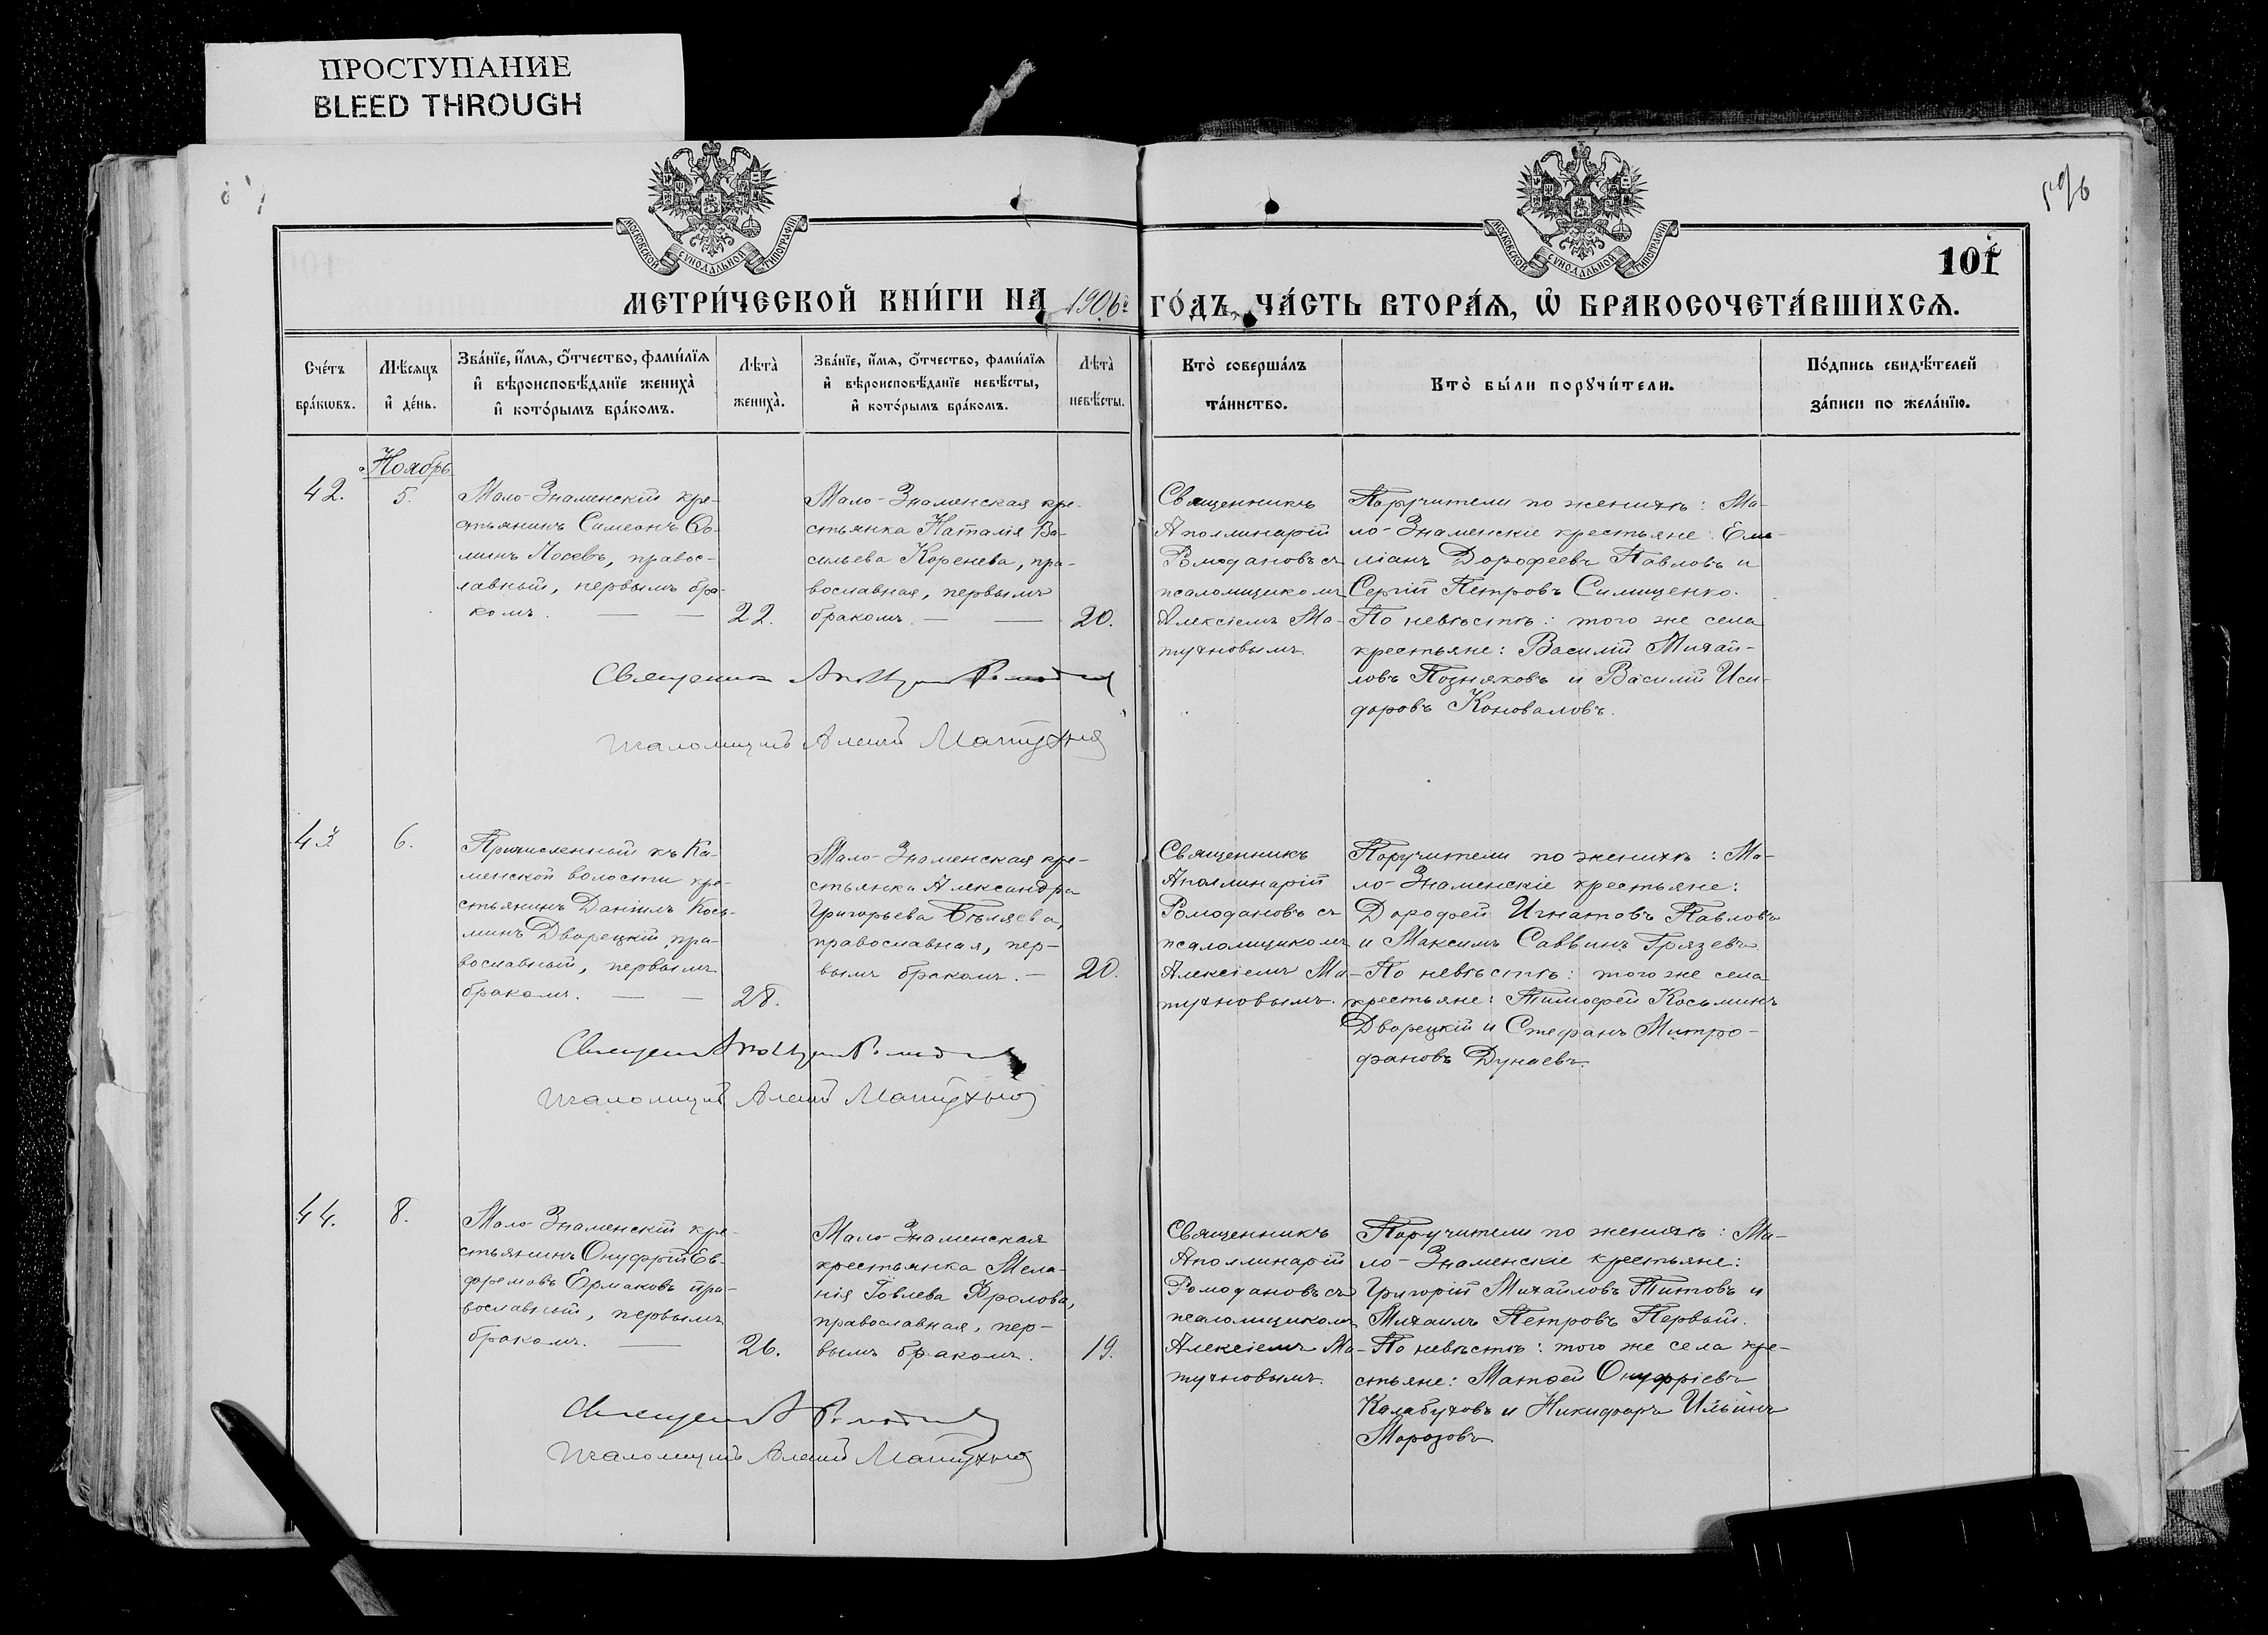 ПРОСТУПАНИЕ
BLEED THROUGH
МОСКОВСКОЙ СѴНОДАЛЬНОЙ ТИПОГРАФІИ
МОСКОВСКОЙ СѴНОДАЛЬНОЙ ТИПОГРАФІИ
101
МЕТРИ́ЧЕСКОЙ КНИ́ГИ НА 1906й ГО́ДЪ, ЧА́СТЬ ВТОРА́Ѧ, Ѽ БРАКОСОЧЕТА́ВШИХСѦ.
Сче́тъ
бра́кѡвъ.
Мѣ́сѧцъ
и҆ де́нь.
Зва́нїе, и҆́мѧ, ѻ҆́тчество, фами́лїѧ
и҆ вѣроисповѣ́данїе жениха̀
и҆ кото́рымъ бра́комъ.
Лѣта̀
жениха̀.
Зва́нїе, и҆́мѧ, ѻ҆́тчество, фами́лїѧ
и҆ вѣроисповѣ́данїе невѣ́сты,
и҆ кото́рымъ бра́комъ.
Лѣта̀
невѣ́сты.
Кто̀ соверша́лъ
та́инство.
Кто̀ бы́ли порꙋчи́тели.
По́дпись свидѣ́телей
за́писи по жела́нїю.
Ноябрь
42.
5.
Мало-Знаменскій кре-
стьянинъ Симеонъ Ѳо-
минъ Лосевъ, правос-
лавный, первымъ бра-
комъ.
22.
Мало-Знаменская кре-
стьянка Наталія Ва-
сильева Коренева, пра-
вославная, первымъ
бракомъ.
20.
Священникъ
Аполлинарій
Ромодановъ съ
псаломщикомъ
Алексіемъ Ма-
тухновымъ.
Поручители по женихѣ: Ма-
ло-Знаменскіе крестьяне: Еми-
ліанъ Дорофеевъ Павловъ и
Сергій Петровъ Симищенко.
По невѣстѣ: того же села
крестьяне: Василій Михай-
ловъ Позняковъ и Василій Иси-
доровъ Коноваловъ.
Священникъ
псаломщикъ Алексій Матухновъ
43
6.
Причисленный къ Ка-
менской волости кре-
стьянинъ Даніилъ Кось-
минъ Дворецкій, пра-
вославный, первымъ
бракомъ.
28.
Мало-Знаменская кре-
стьянка Александра
Григорьева Бѣляева,
православная, пер-
вымъ бракомъ.
20.
Священникъ
Аполлинарій
Ромодановъ съ
псаломщикомъ
Алексіемъ Ма-
тухновымъ.
Поручители по женихѣ: Ма-
ло-Знаменскіе крестьяне:
Дорофей Игнатовъ Павловъ
и Максимъ Саввинъ Грязевъ.
По невѣстѣ: того же села
крестьяне: Тимофей Косьминъ
Дворецкій и Стефанъ Митро-
фановъ Дунаевъ.
псаломщикъ Алексій Матухновъ
44.
8.
Мало-Знаменскій кре-
стьянинъ Онуфрій Ев-
форемовъ Ермаковъ пра-
вославный, первымъ
бракомъ.
26.
Мало-Знаменская
крестьянка Мела-
нія Іовлева Фролова,
православная, пер-
вымъ бракомъ.
19.
Священникъ
Аполлинарій
Ромодановъ съ
псаломщикомъ
Алексіемъ Ма-
тухновымъ.
Поручители по женихѣ: Ма-
ло-Знаменскіе крестьяне:
Григорій Михайловъ Титовъ и
Михаилъ Петровъ Первый.
По невѣстѣ: того же села кре-
стьяне: Матѳей Онуфріевъ
Калабуховъ и Никифоръ Ильинъ
Морозовъ
псаломщикъ Алексій Матухновъ